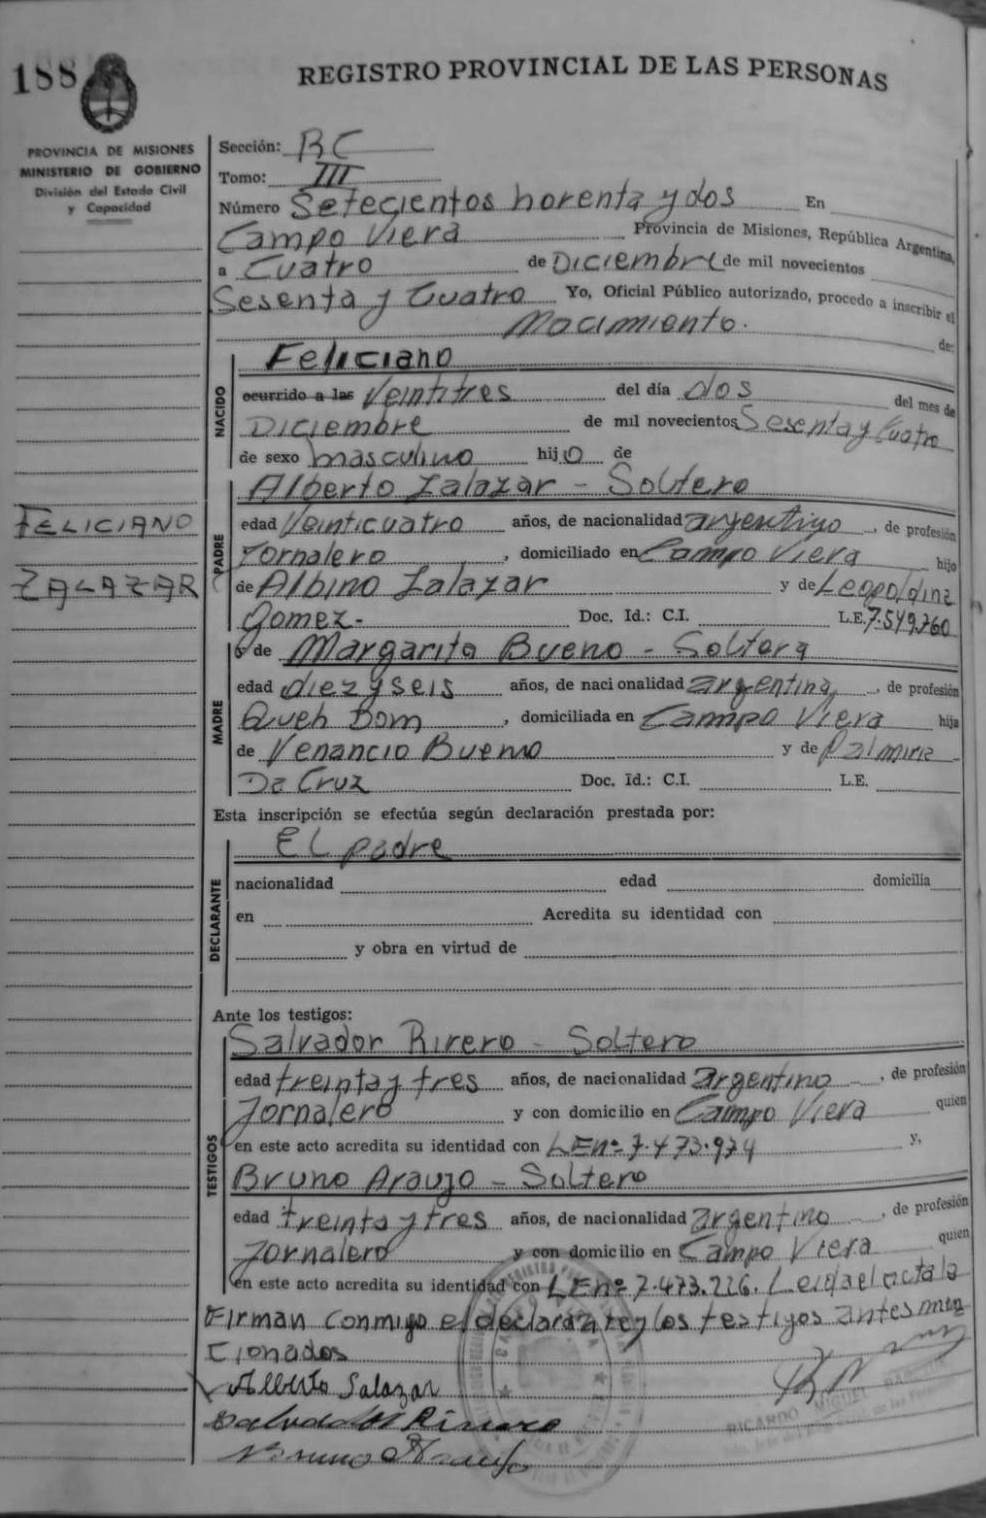 188
REGISTRO PROVINCIAL DE LAS PERSONAS
PROVINCIA DE MISIONES
MINISTERIO DE GOBIERNO
División del Estado Civil
y Capacidad
Sección: BC
Tomo: III
Número Setecientos norenta y dos En
Campo Viera Provincia de Misiones, República Argentina,
a Cuatro de Diciembre de mil novecientos
Sesenta y Cuatro Yo, Oficial Público autorizado, procedo a inscribir el
Nacimiento. de:
NACIDO
Feliciano
ocurrido a las Veintitres del día dos del mes de
Diciembre de mil novecientos Sesenta y Cuatro
de sexo masculino hijo de
PADRE
Alberto Zalazar - Soltero
edad Veinticuatro años, de nacionalidad argentino, de profesión
Jornalero, domiciliado en Campo Viera hijo
de Albino Zalazar y de Leopoldina
Gomez- Doc. Id.: C.I. L.E. 7.549.760
FELICIANO
ZALAZAR
MADRE
y de Margarita Bueno - Soltera
edad diez y seis años, de nacionalidad argentina, de profesión
Queh Dom, domiciliada en Campo Viera hija
de Venancio Bueno y de Palmira
Da Cruz Doc. Id.: C.I. L.E.
Esta inscripción se efectúa según declaración prestada por:
DECLARANTE
El padre
nacionalidad edad domicilia
en Acredita su identidad con
y obra en virtud de
Ante los testigos:
TESTIGOS
Salvador Rivero - Soltero
edad treinta y tres años, de nacionalidad argentino, de profesión
Jornalero y con domicilio en Campo Viera quien
en este acto acredita su identidad con LEnº 7.473.974 y,
Bruno Araujo - Soltero
edad treinta y tres años, de nacionalidad argentino, de profesión
Jornalero y con domicilio en Campo Viera quien
en este acto acredita su identidad con LEnº 7.473.226. Leida el acta la
Firman conmigo el declarante y los testigos antes men
cionados
Alberto Salazar
RICARDO MIGUEL